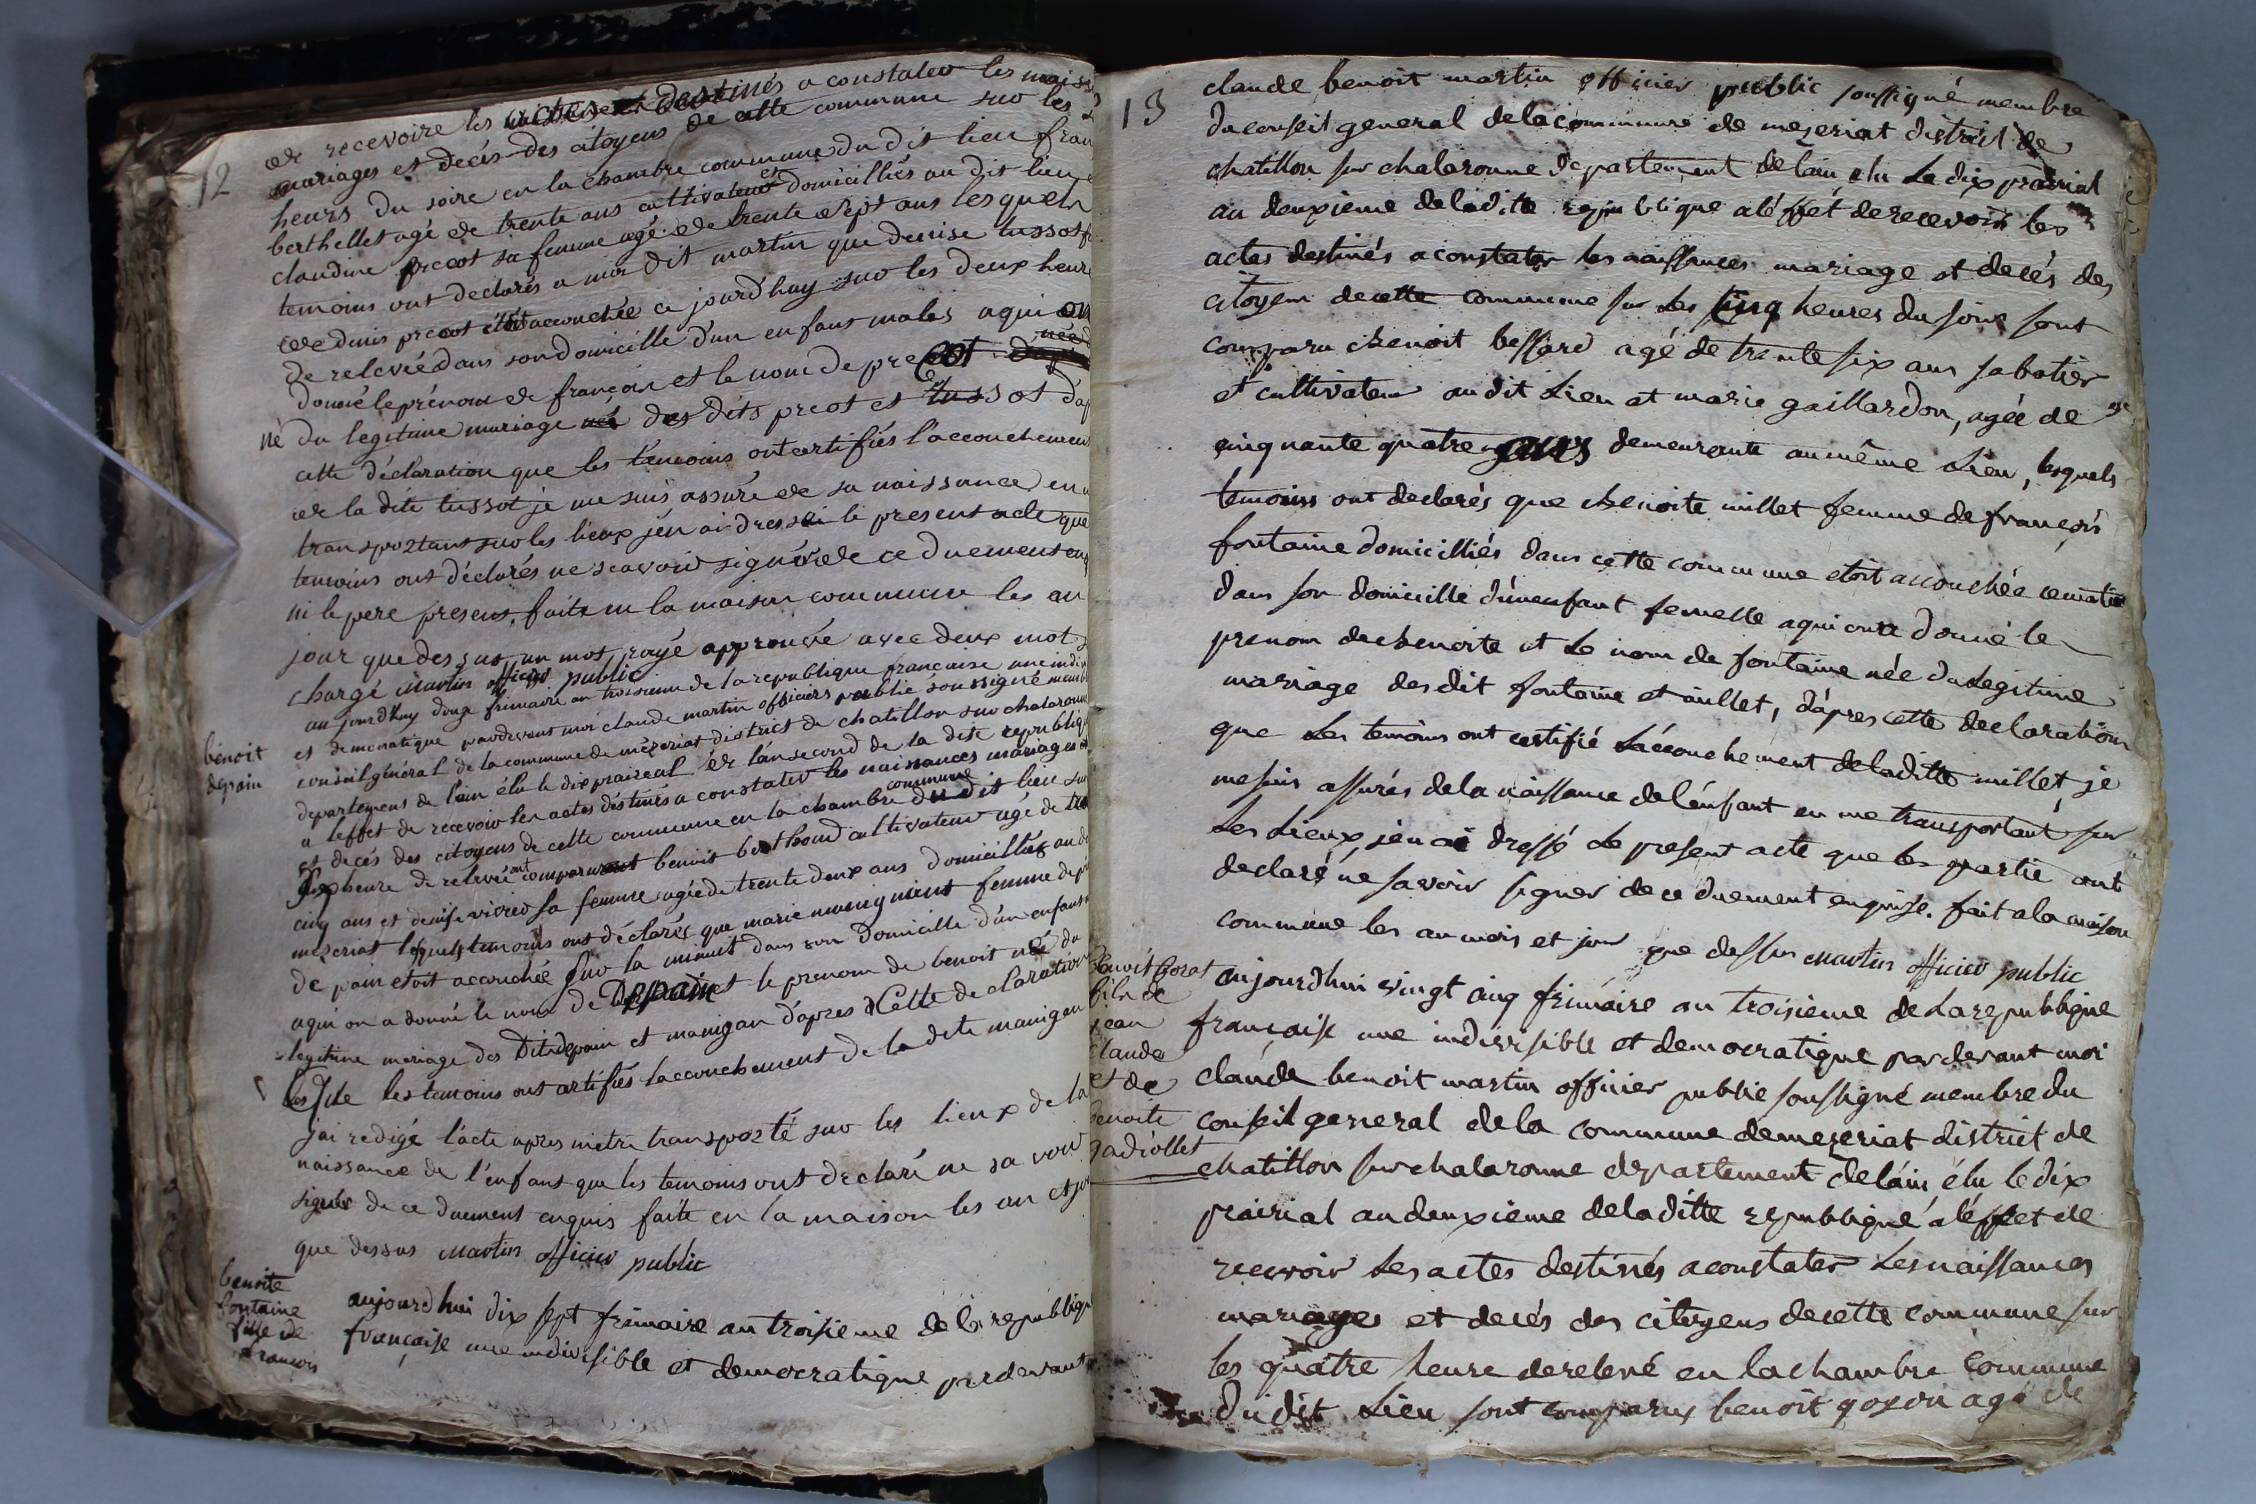 12
de recevoire les actes destinés a constater les naiss
mariages et décés des citoyens de cette commune sur les
heurs du soire en la chambre commune du dit lieu fran
berthellet agé de trente ans cultivateurs domicilliés au dit lieu e
claudine precot sa femme agé de trente sept ans lesquels
temoins ont declarés a moi dit martin que denise tussot f
de denis precot étoit accouchée ce jourd'huy sur les deux heure
de relevée dans son domicille d'un enfant males aqui on
donné le prénom de françois et le nom de precot
né du legitime mariage des dits precot et tussot d'ap
cette déclaration que les témoins ont certifiés l'accouchement
de la dite tussot je me suis assuré de sa naissance en
transportant sur les lieux j'en ai dressai le present acte que
temoins ont déclarés ne scavoir signér de ce duement enq
ni le pere present, faite en la maison commune les an
jour que dessus un mot rayé approuvée avec deux mot
chargé Martin officier public
benoit
depain
aujourdhuy douze frimaire an troisieme de la republique française une indiv
et democratique pardevant moi claude martin officiers public soussigné memb
conseil général de la commune de mézériat district de chatillon sur chalaronne
departement de l'ain élu le dix prairéal de l'an second de la dite republiqu
a l'effet de recevoir les actes déstinés a constater les naissances mariages
et decés des citoyens de cette commune en la chambre commune du dit lieu sur
six heure de relevée ont comparurent benoit berthoud cultivateur agé de tre
cinq ans et denise vicrio sa femme agée de trente deux ans domicilliés au d
mezeriat lesquels temoins ont déclarés que marie femme de
de pain etoit accouchée sur la minuit dans son domicille d'un enfant
aqui on a donné le nom de Depain et le prenom de benoit né du
legitime mariage des Dits depain et manigan d'apres Cette declaration
que les temoins ont certifiés laccouchement de la dite manigan
jai redigé l'acte apres metre transporté sur les lieux de la
naissance de l'enfant que les temoins ont declaré ne sa voir
signér de ce duement enquis faite en la maison les an et jo
que dessus Martin officier public
benoite
fontaine
fille de
francois
aujourdhui dix sept frimaire an troisieme de la republiqu
française une indivisible et democratique pardevant
13
claude benoit martin officier public soussigné membre
du conseil general de la commune de mezeriat district de
chatillon sur chalaronne departement de lain elu Le dix prairial
an deuxieme de la ditte republique a léffét de recevoir les
actes destinés a constater les naissances mariage et decés des
citoyens de cette commune sur Les cinq heures du soire sont
comparu benoit bessard agé de trente six ans sabotier
et cultivateur audit Lieu et marie gaillardon, agée de
cinquante quatre ans demeurante au même Lieu, lesquels
temoins ont declarés que benoite millet femme de françois
fontaine domicilliés dans cette commune etoit accouchée ce matin
dans son domicille d'un enfant femelle aqui ont donné le
prenom de benoite et Le nom de fontaine née du Legitime
mariage desdit fontaine et millet, d'apres cette declaration
que Les temoins ont certifié L'accouchement de laditte millet, je
me suis assurés de la naissance de l'enfant en me transportant sur
Les Lieux, jen ai dressé Le present acte que les partie ont
declaré ne savoir signer de ce duement enquise. fait a la maison
commune les an mois et jour que dessus Martin officier public
benoit gorat
fils de
jean
claude
et de
benoite
gadiollet
aujourdhui vingt cinq frimaire an troisieme de La republique
française une indivisible et democratique par devant moi
claude benoit martin officier public soussigné membre du
conseil general de la commune de mezeriat district de
chatillon sur chalaronne departement de láin élu le dix
prairial an deuxieme de la ditte republique a léffet de
recevoir Les actes destinés a constater Les naissances
mariages et decés des citoyens de cette commune sur
les quatre heure de relevé en la chambre commune
du dit Lieu sont comparux benoit goyon agé de